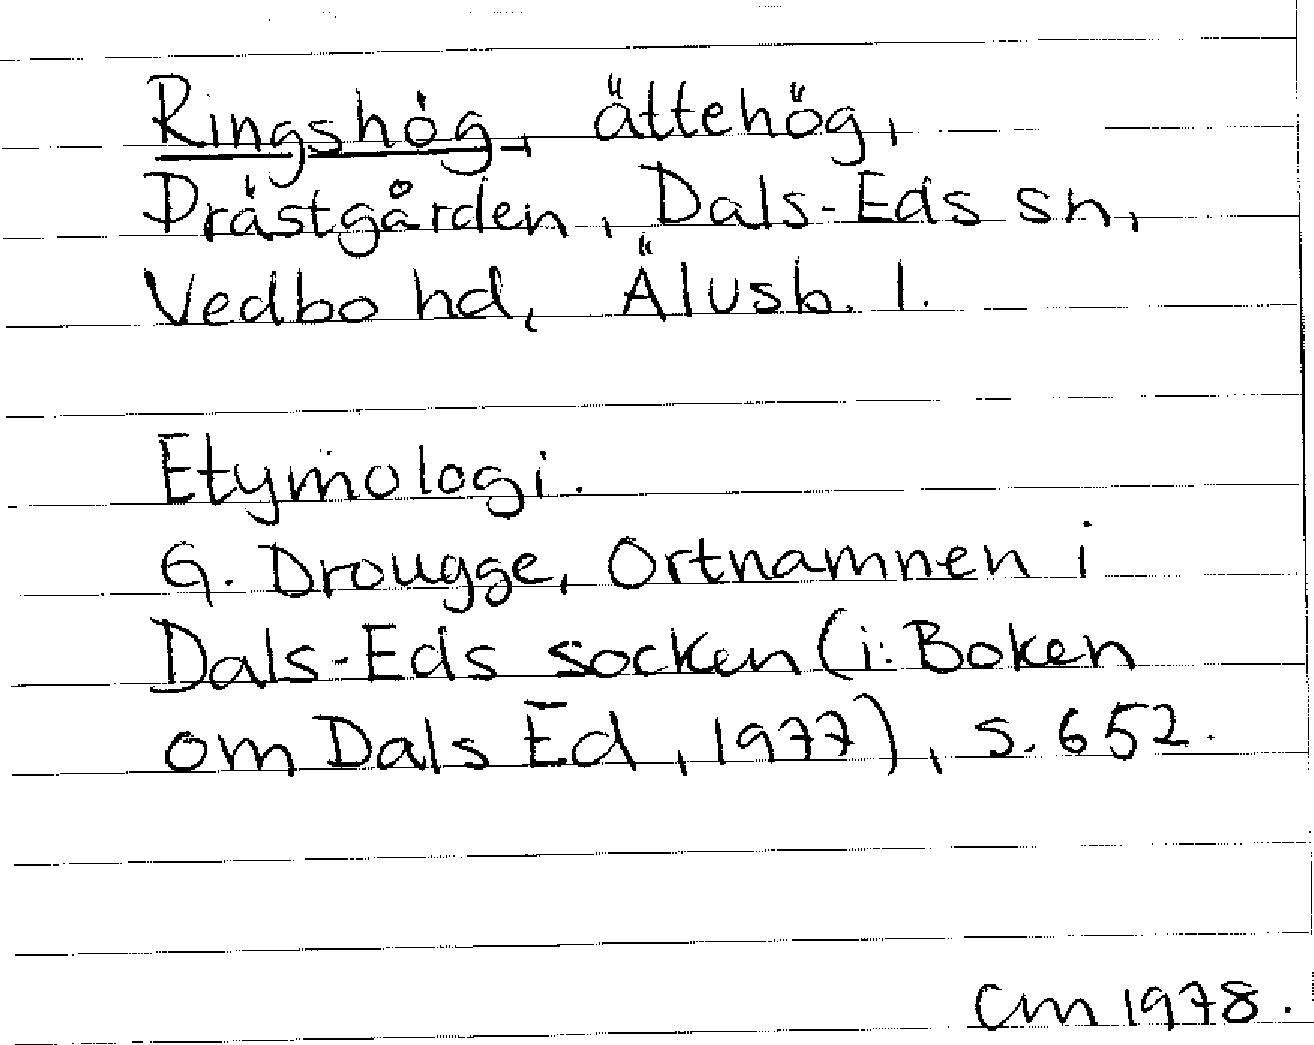 Ringshög, ättehög,
Prästgården, Dals-Eds sn,
Vedbo hd, Älvsb. l.
Etymologi.
G. Drougge, Ortnamnen i
Dals-Eds socken (i: Boken
om Dals Ed, 1977), s. 652.
CM 1978.